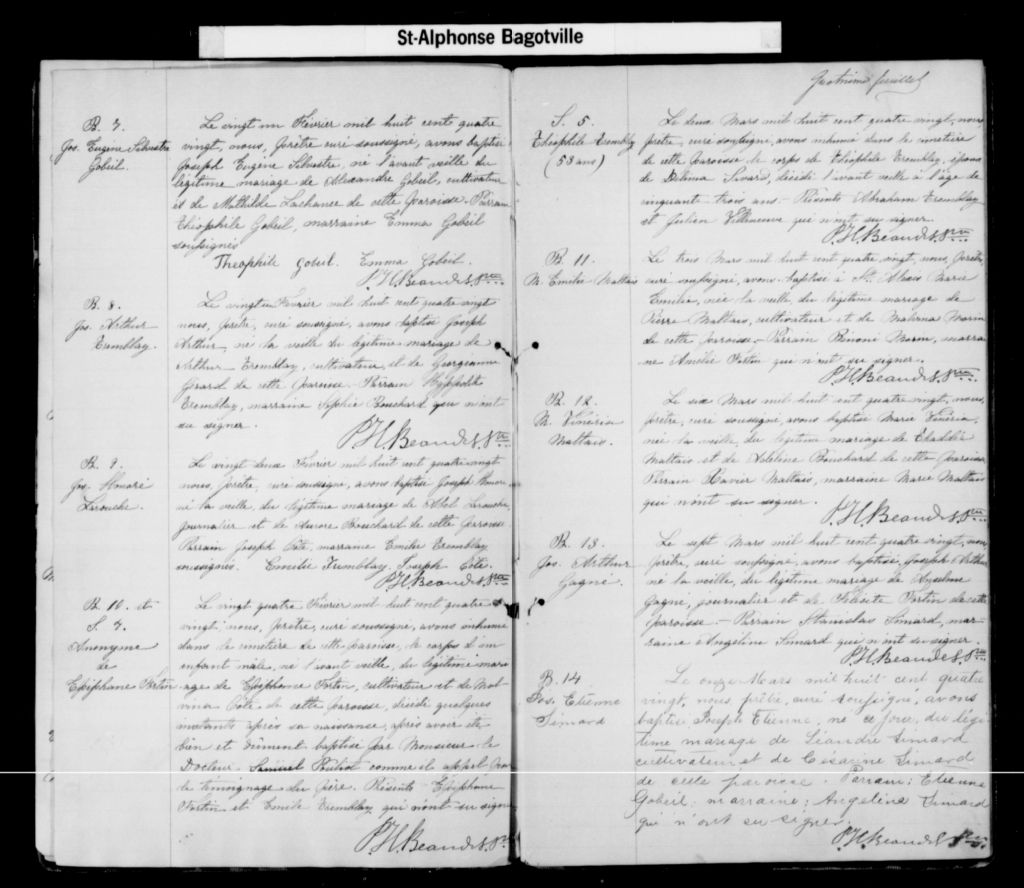 St-Alphonse Bagotville
B. 7.
Jos. Eugène Silvestre
Gobeil.
Le vingt un Février mil huit cent quatre
vingt, nous, prêtre curé soussigné, avons baptisé
Joseph Eugène Silvestre, né l'avant veille du
légitime mariage de Alexandre Gobeil, cultivateur
et de Mathilde Lachance de cette paroisse. Parrain
Théophile Gobeil, marraine Emma Gobeil
soussignés
Theophile Gobeil. Emma Gobeil.
P.H. Beaudet, Ptre
B. 8.
Jos. Arthur
Tremblay.
Le vingt un Février mil huit cent quatre vingt
nous, prêtre, curé soussigné, avons baptisé Joseph
Arthur, né la veille du légitime mariage de
Arthur Tremblay, cultivateur, et de Georgianne
Girard de cette paroisse. Parrain Hyppolite
Tremblay, marraine Sophie Bouchard qui n'ont
su signer.
P.H. Beaudet, Ptre
B. 9.
Jos. Honoré
Larouche.
Le vingt deux Février mil huit cent quatre vingt
nous, prêtre, curé soussigné, avons baptisé Joseph Honoré
né la veille du légitime mariage de Abel Larouche,
journalier et de Aurore Bouchard de cette paroisse
Parrain Joseph Côté, marraine Emilie Tremblay
soussignés. Emilie Tremblay. Joseph Côté.
P.H. Beaudet, Ptre
B. 10. et
S. 7.
Anonyme
de
Epiphane Fortin
Le vingt quatre Février mil huit cent quatre
vingt, nous, prêtre, curé soussigné, avons inhumé
dans le cimetière de cette paroisse, le corps d'un
enfant mâle, né l'avant veille, du légitime mari
age de Epiphane Fortin, cultivateur et de Mal
vina Côté de cette paroisse, décédé quelques
instants après sa naissance, après avoir été
bien et dûment baptisé par Monsieur le
Docteur Samuel comme il appert par
le témoignage du père. Présents Epiphane
Fortin et Emile Tremblay qui n'ont su signer
P.H. Beaudet, Ptre
Quatrième feuillet
S. 5.
Théophile Tremblay
(53 ans)
Le deux Mars mil huit cent quatre vingt, nous
prêtre, curé soussigné, avons inhumé dans le cimetière
de cette paroisse le corps de Théophile Tremblay, époux
de Delima Simard, décédé l'avant veille à l'âge de
cinquante trois ans. Présents Abraham Tremblay
et Julien Villeneuve qui n'ont su signer.
P.H. Beaudet, Ptre
B. 11.
M. Emilie Maltais
Le trois Mars mil huit cent quatre vingt, nous, prêtre,
curé soussigné, avons baptisé à St. Alexis Marie
Emilie, née la veille, du légitime mariage de
Pierre Maltais, cultivateur et de Morin
de cette paroisse. Parrain Benoni Morin, marrai
ne Amélie Fortin qui n'ont su signer.
P.H. Beaudet, Ptre
B. 12.
M. Vénérin
Maltais.
Le six Mars mil huit cent quatre vingt, nous,
prêtre, curé soussigné, avons baptisé Marie
née la veille, du légitime mariage de
Maltais et de Adeline Bouchard de cette paroisse
Parrain Xavier Maltais, marraine Marie Maltais
qui n'ont su signer.
P.H. Beaudet, Ptre
B. 13.
Jos. Arthur
Gagné.
Le sept Mars mil huit cent quatre vingt, nous
prêtre, curé soussigné, avons baptisé, Joseph Arthur
né la veille, du légitime mariage de Anselme
Gagné, journalier et de Félicité Fortin de cette
paroisse. — Parrain Stanislas Simard, mar
raine Angéline Simard qui n'ont su signer.
P.H. Beaudet, Ptre
B. 14
Jos. Etienne
Simard
Le onze Mars mil huit cent quatre
vingt, nous prêtre, curé soussigné, avons
baptisé Joseph Etienne, né ce jour, du légi
time mariage de Léandre Simard
cultivateur et de Césarine Simard
de cette paroisse. Parrain: Etienne
Gobeil: marraine: Angelina Simard
qui n'ont su signer.
P.H. Beaudet Ptre